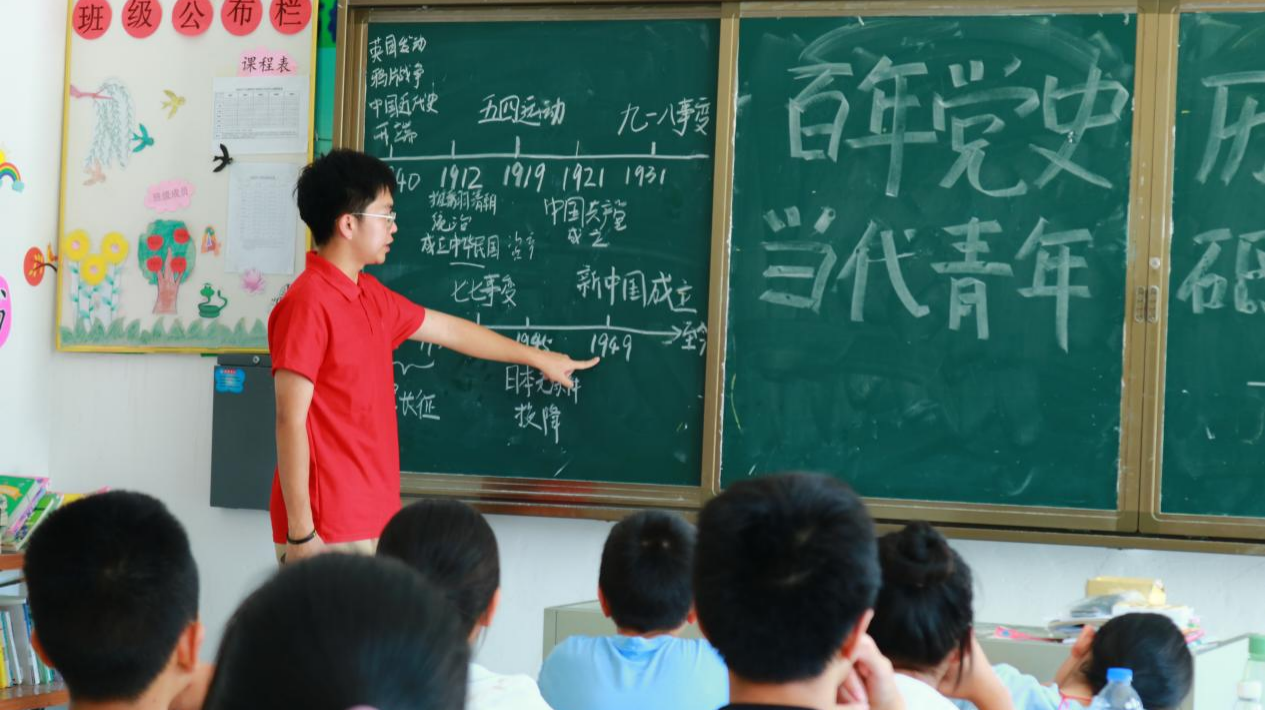 班级公布栏
课程表
班级成员
英国发动
鸦片战争
中国近代史
开端
五四运动
九一八事变
40 1912 1919 1921 1931
推翻清朝
统治
成立中华民国
中国共产党
成立
七七事变
新中国成立
1945 1949 至今
长征
日本无条件
投降
百年党史
当代青年
历
砥